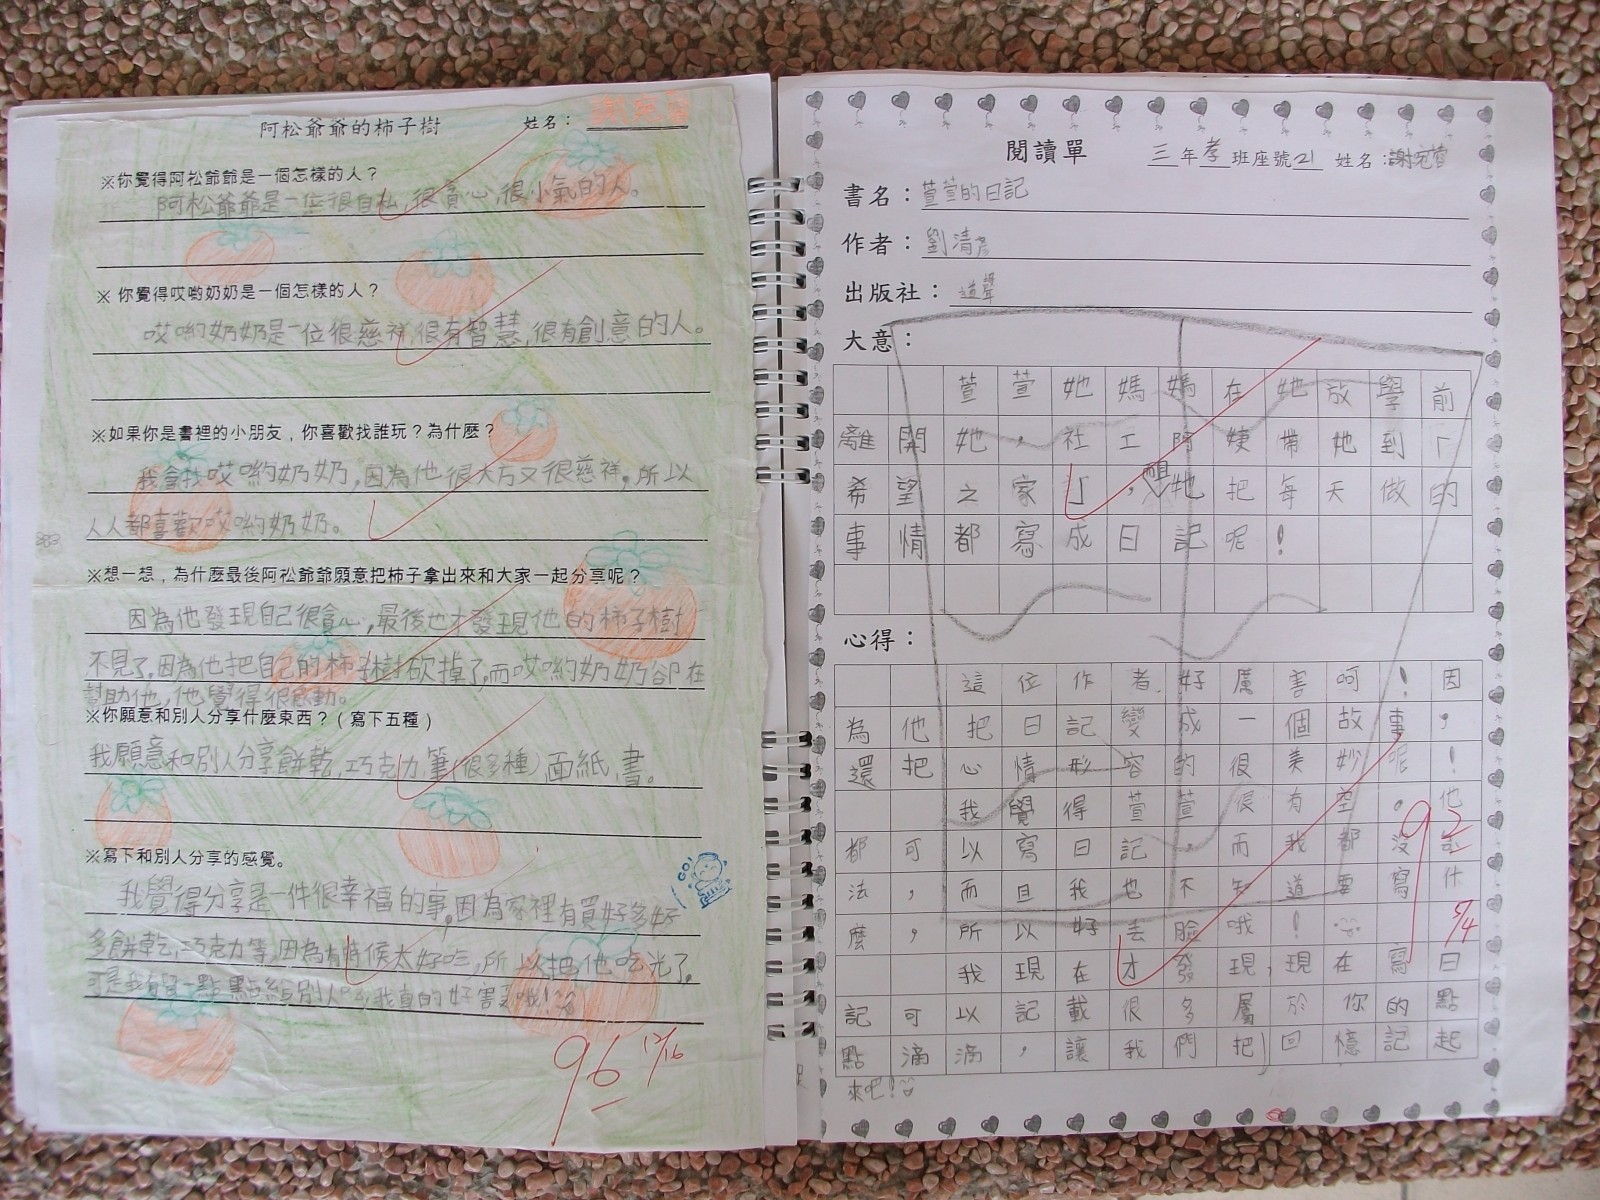 阿松爺爺的柿子樹 姓名：
※你覺得阿松爺爺是一個怎樣的人？
阿松爺爺是一位很自私,很貪心,很小氣的人。
※ 你覺得哎喲奶奶是一個怎樣的人？
哎喲奶奶是一位很慈祥,很有智慧,很有創意的人。
※如果你是書裡的小朋友，你喜歡找誰玩？為什麼？
我會找哎喲奶奶,因為他很大方又很慈祥,所以
人人都喜歡哎喲奶奶。
※想一想，為什麼最後阿松爺爺願意把柿子拿出來和大家一起分享呢？
因為他發現自己很貪心,最後也才發現他的柿子樹
不見了,因為他把自己的柿子樹砍掉了,而哎喲奶奶卻在
幫助他,他覺得很感動。
※你願意和別人分享什麼東西？（寫下五種）
我願意和別人分享餅乾,巧克力,筆(很多種),面紙,書。
※寫下和別人分享的感覺。
我覺得分享是一件很幸福的事,因為家裡有買好多好
多餅乾,巧克力等,因為有時候太好吃,所以把他吃光了,
GO!
96 12/16
閱讀單 三年孝班座號21 姓名：謝宛蓉
書名：萱萱的日記
作者：劉清彥
出版社：道聲
大意：
萱萱她媽媽在她放學前
離開她，社工阿姨帶她到「
希望之家」，她把每天做的
事情都寫成日記呢！
心得：
這位作者好厲害呵！因
為他把日記變成一個故事，
還把心情形容的很美妙呢！
我覺得萱萱很有空。他
都可以寫日記，而我都沒
法，而且我也不知道要寫什
麼，所以好丟臉哦！
我現在才發現,現在寫日
記可以記載很多屬於你的點
點滴滴，讓我們把回憶記起
來吧！
92
5/4